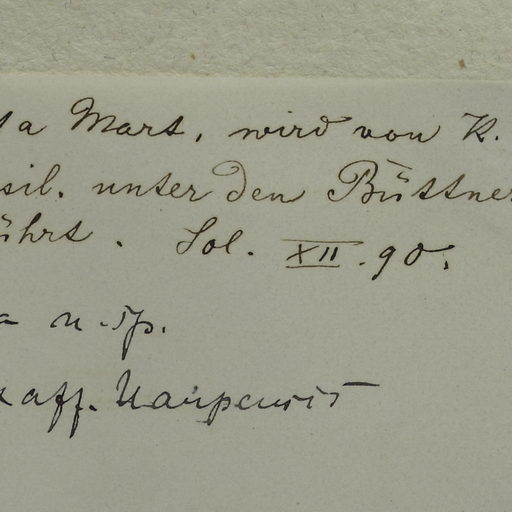 ta Mart, wird von K.
sil. unter den Büttner
ührt. Sol. XII. 90.
a n. sp.
aff. Uaupensis